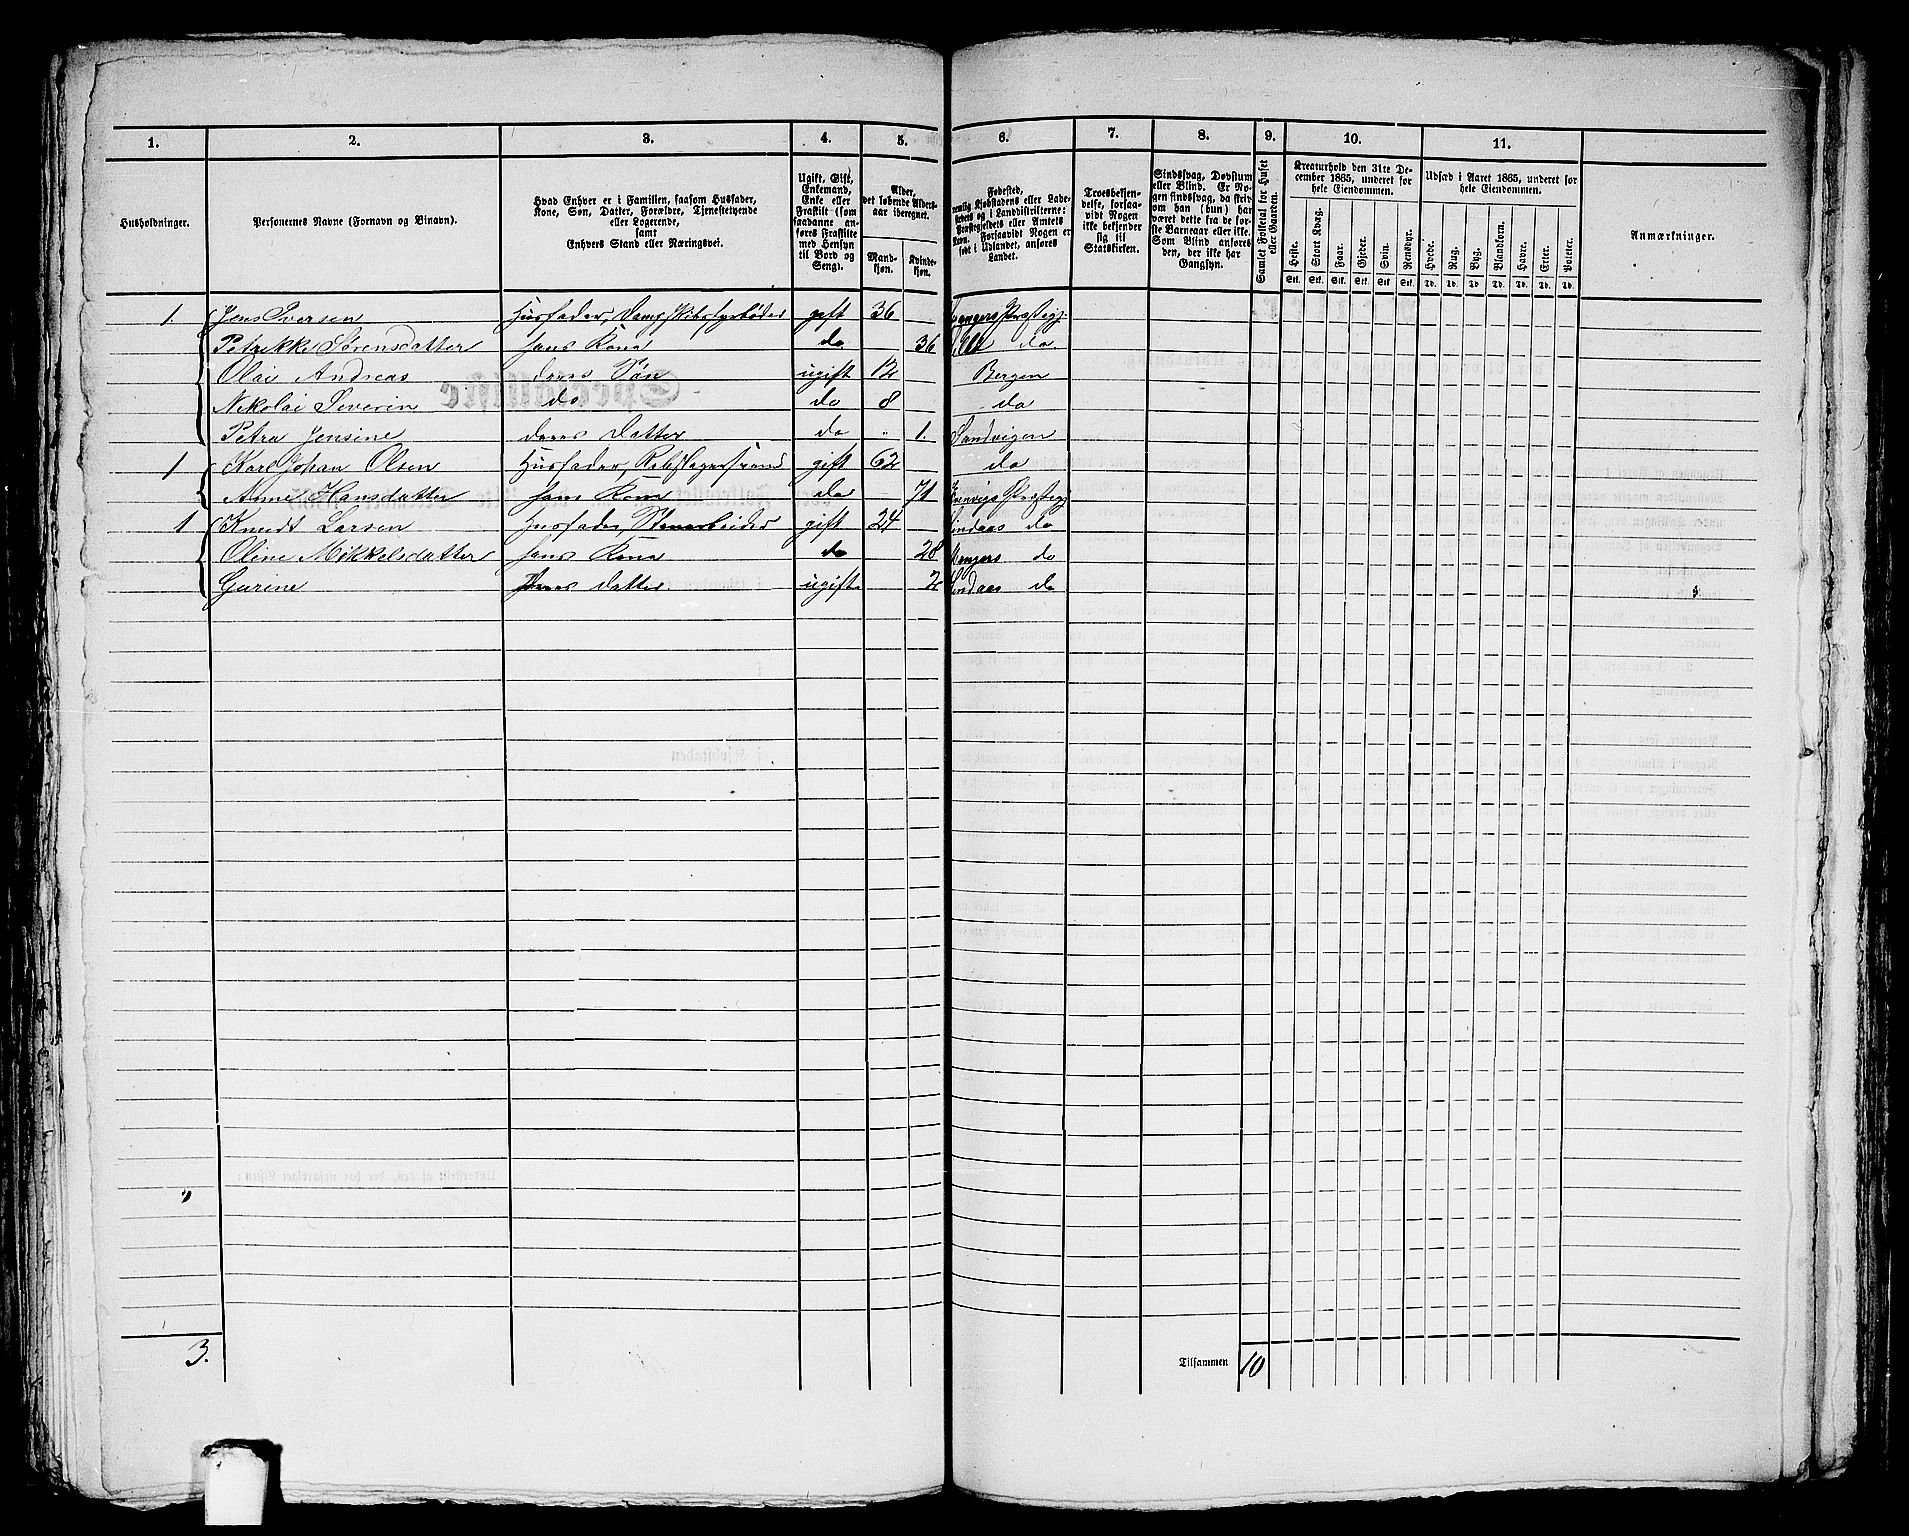 1. 2. 3. 4. 5. 6. 7. 8. 9. 10. 11.
Husholdninger.
Personernes Navne (Fornavn og Binavn).
Hvad Enhver er i Familien, saasom Husfader,
Kone, Søn, Datter, Forældre, Tjenestetyende
eller Logerende,
samt
Enhvers Stand eller Næringsvei.
Ugift, Gift,
Enkemand,
Enke eller
Fraskilt (som
saadanne an-
føres Fraskilte
med Hensyn
til Bord og
Seng).
Alder,
det løbende Alders-
aar iberegnet.
Mand-
kjøn.
Kvinde-
kjøn.
Fødested,
nemlig Kjøbstadens eller Lade-
stedets og i Landdistrikterne:
Præstegjeldets eller Amtets
Navn. Forsaavidt Nogen er
født i Udlandet, anføres
Landet.
Troesbekjen-
delse, forsaa-
vidt Nogen
ikke bekjender
sig til
Statskirken.
Sindssvag, Døvstum
eller Blind. Er No-
gen sindssvag, da skriv
om han (hun) har
været dette fra de før-
ste Barneaar eller ikke.
Som Blind anføres
den, der ikke har
Gangsyn.
Samlet Folketal for Huset
eller Gaarden.
Kreaturhold den 31te De-
cember 1865, underet for
hele Eiendommen.
Heste. Stort Kvæg. Faar. Gjeder. Svin. Rensdyr.
Stk. Stk. Stk. Stk. Stk. Stk.
Udsæd i Aaret 1865, underet for
hele Eiendommen.
Hvede. Rug. Byg. Blandkorn. Havre. Erter. Poteter.
Td. Td. Td. Td. Td. Td. Td.
Anmærkninger.
1. Jens Iversen Husfader, Dampskibsfyrbøder gift 36 Præstegj.
Petrikke Sørensdatter hans Kone do 36 do
Olai Andreas deres Søn ugift 12 Bergen
Nikolai Severin do do 8 do
Petra Jensine deres Datter do 1. Sandvigen
1 Karl Johan Olsen Husfader, Rebslagersvend gift 62 do
Anne Hansdatter hans Kone do 71 Evenvigs Præstegj
1 Knudt Larsen Husfader, Stenarbeider gift 24 Lindaas do
Oline Mikkelsdatter hans Kone do 28 Mangers do
Gurine deres Datter ugift 2 Lindaas do
3. Tilsammen 10